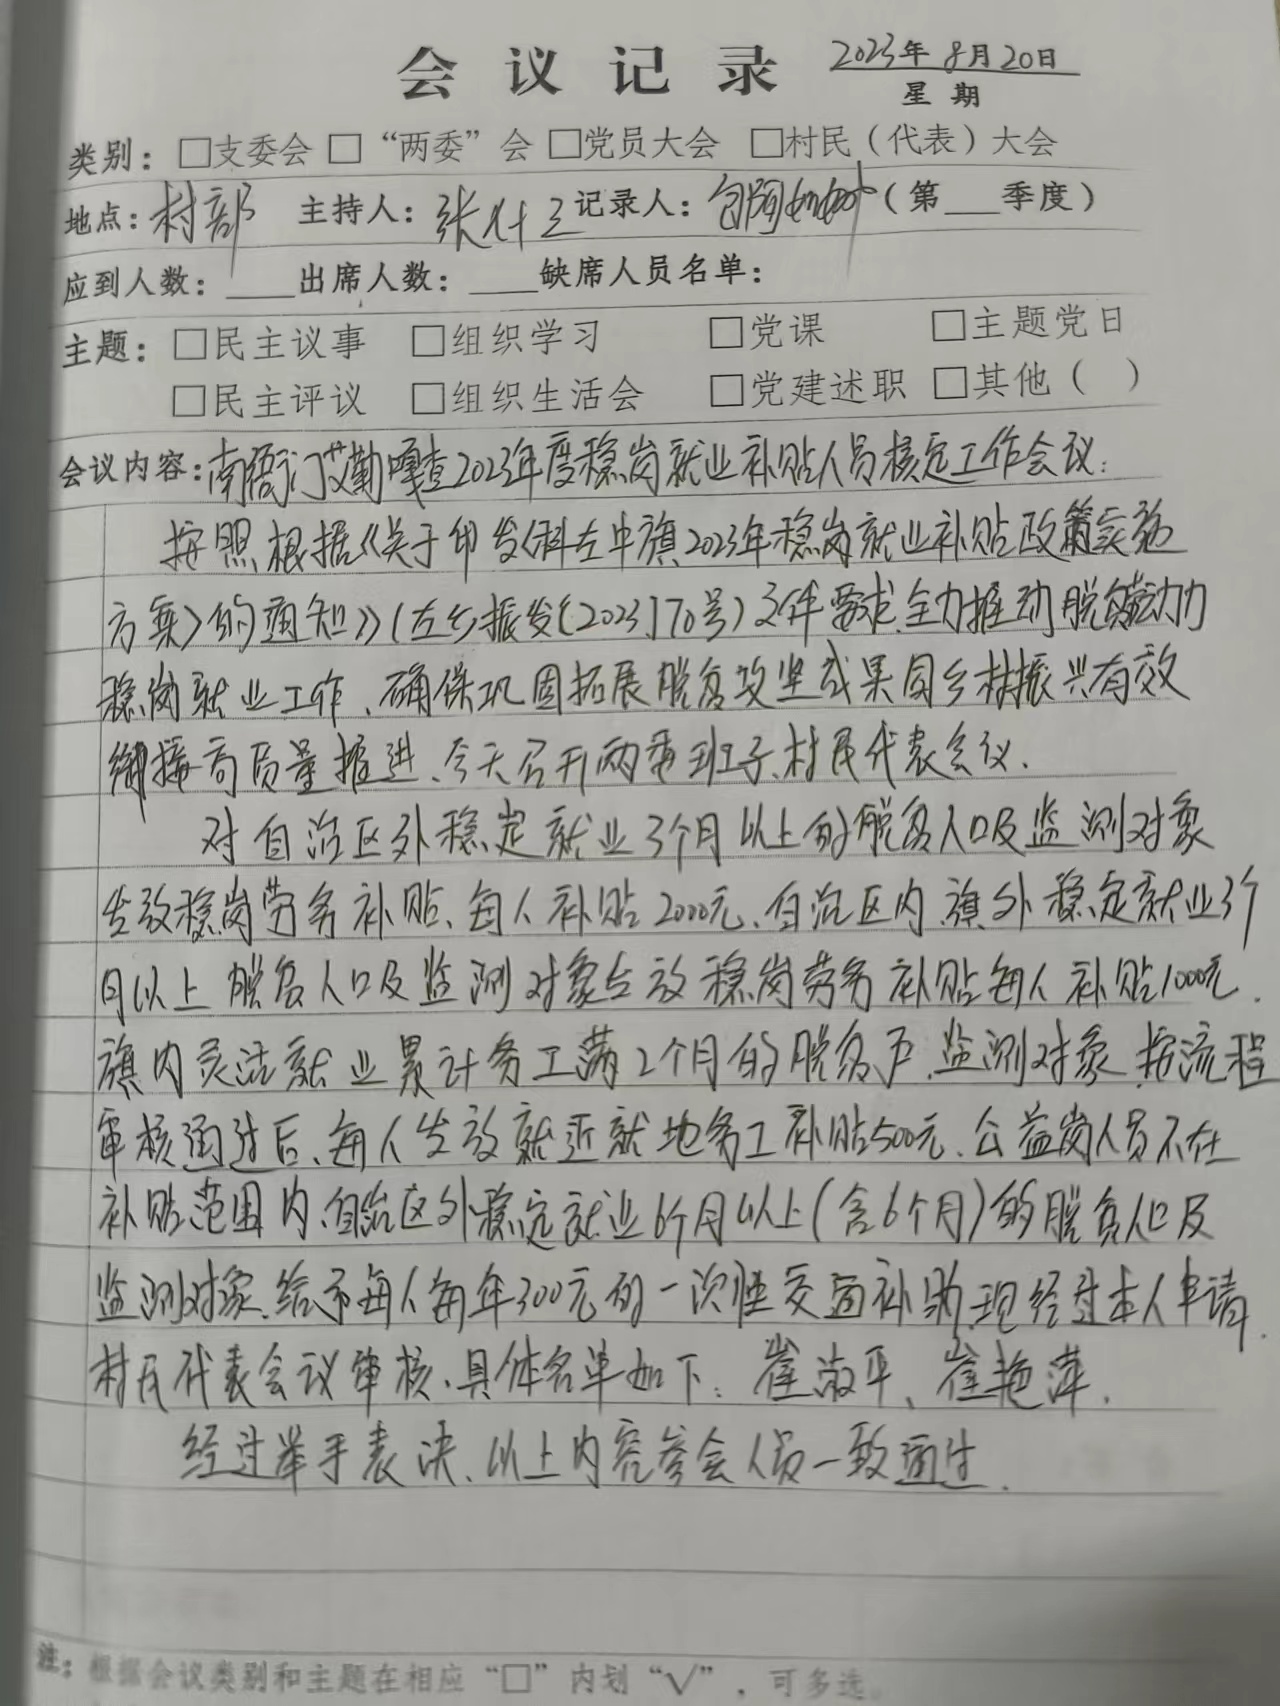 会议记录 2023年8月20日
星期
类别：□支委会 □“两委”会 □党员大会 □村民（代表）大会
地点：村部 主持人：张 记录人：包 （第___季度）
应到人数：____出席人数：____缺席人员名单：
主题：□民主议事 □组织学习 □党课 □主题党日
□民主评议 □组织生活会 □党建述职 □其他（ ）
会议内容：南 门艾勒嘎查2023年度稳岗就业补贴人员核定工作会议：
按照根据《关于印发〈科左中旗2023年稳岗就业补贴政策实施
方案〉的通知》（左乡振发〔2023〕70号）文件要求、全力推动脱贫劳动力
稳岗就业工作、确保巩固拓展脱贫攻坚成果同乡村振兴有效
衔接高质量推进、今天召开两委班子、村民代表会议.
对自治区外稳定就业3个月以上的脱贫人口及监测对象
发放稳岗劳务补贴、每人补贴2000元、自治区内、旗外稳定就业3个
月以上脱贫人口及监测对象发放稳岗劳务补贴每人补贴1000元.
旗内灵活就业累计务工满2个月的脱贫户、监测对象、按流程
审核通过后、每人发放就近就地务工补贴500元、公益岗人员不在
补贴范围内、自治区外稳定就业6个月以上（含6个月）的脱贫人口及
监测对象、给予每人每年300元的一次性交通补助、现经过本人申请.
村民代表会议审核、具体名单如下：崔淑平、崔艳萍.
经过举手表决、以上内容参会人员一致通过.
注：根据会议类别和主题在相应“□”内划“√”，可多选。